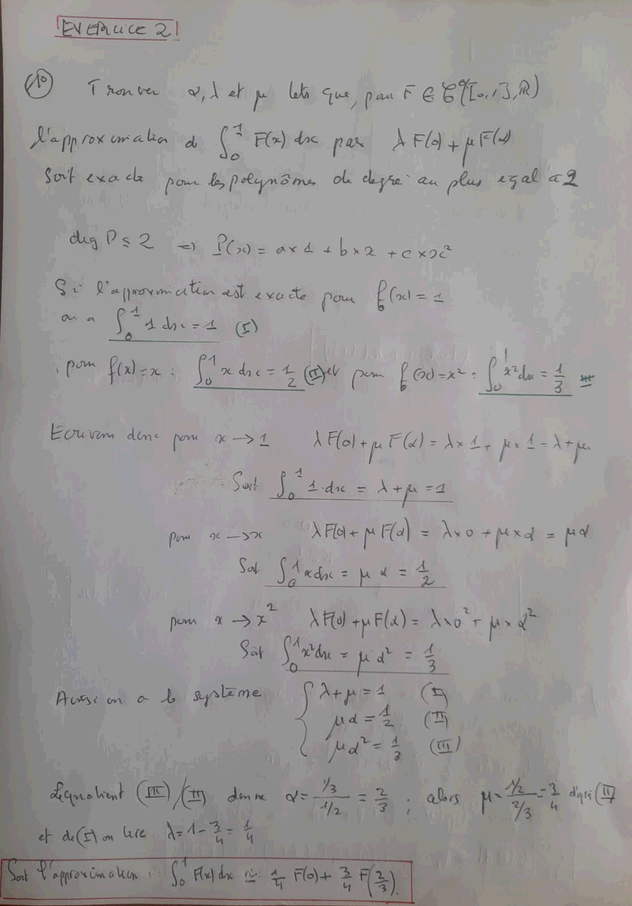 EXERCICE 2
1°) Trouver α, λ et μ tels que, pour F ∈ C⁰([0,1], ℝ)
l'approximation de ∫₀¹ F(x) dx par λ F(0) + μ F(α)
Soit exacte pour les polynômes de degré au plus egal à 2
deg P ≤ 2 ⇒ P(x) = a×1 + b×x + c×x²
Si l'approximation est exacte pour f(x) = 1
on a ∫₀¹ 1 dx = 1 (I)
pour f(x) = x : ∫₀¹ x dx = 1/2 (II) et pour f(x) = x² : ∫₀¹ x² dx = 1/3 III
Ecrivons donc pour x → 1 λ F(0) + μ F(α) = λ×1 + μ×1 = λ+μ
Soit ∫₀¹ 1·dx = λ + μ = 1
pour x → x λF(0) + μ F(α) = λ×0 + μ×α = μα
Soit ∫₀¹ x dx = μ α = 1/2
pour x → x² λF(0) + μF(α) = λ×0² + μ×α²
Soit ∫₀¹ x² dx = μ α² = 1/3
Ainsi on a le système { λ + μ = 1 (I)
μα = 1/2 (II)
μα² = 1/3 (III)
Le quotient (III)/(II) donne α = (1/3)/(1/2) = 2/3 ; alors μ = (1/2)/(2/3) = 3/4 d'après (II)
et de (I) on tire λ = 1 - 3/4 = 1/4
Soit l'approximation : ∫₀¹ F(x) dx ≃ 1/4 F(0) + 3/4 F(2/3).